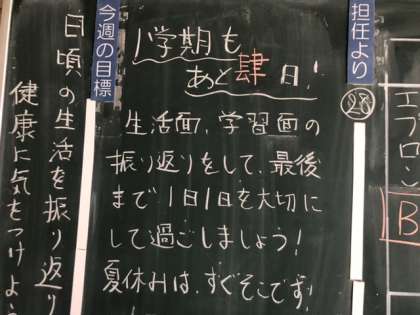 担任より
㉘
1学期も
あと肆日!
生活面、学習面の
振り返りをして、最後
まで1日1日を大切に
して過ごしましょう!
夏休みは、すぐそこです!
今週の目標
日頃の生活を振り返り
健康に気をつけよう
エプロン
B